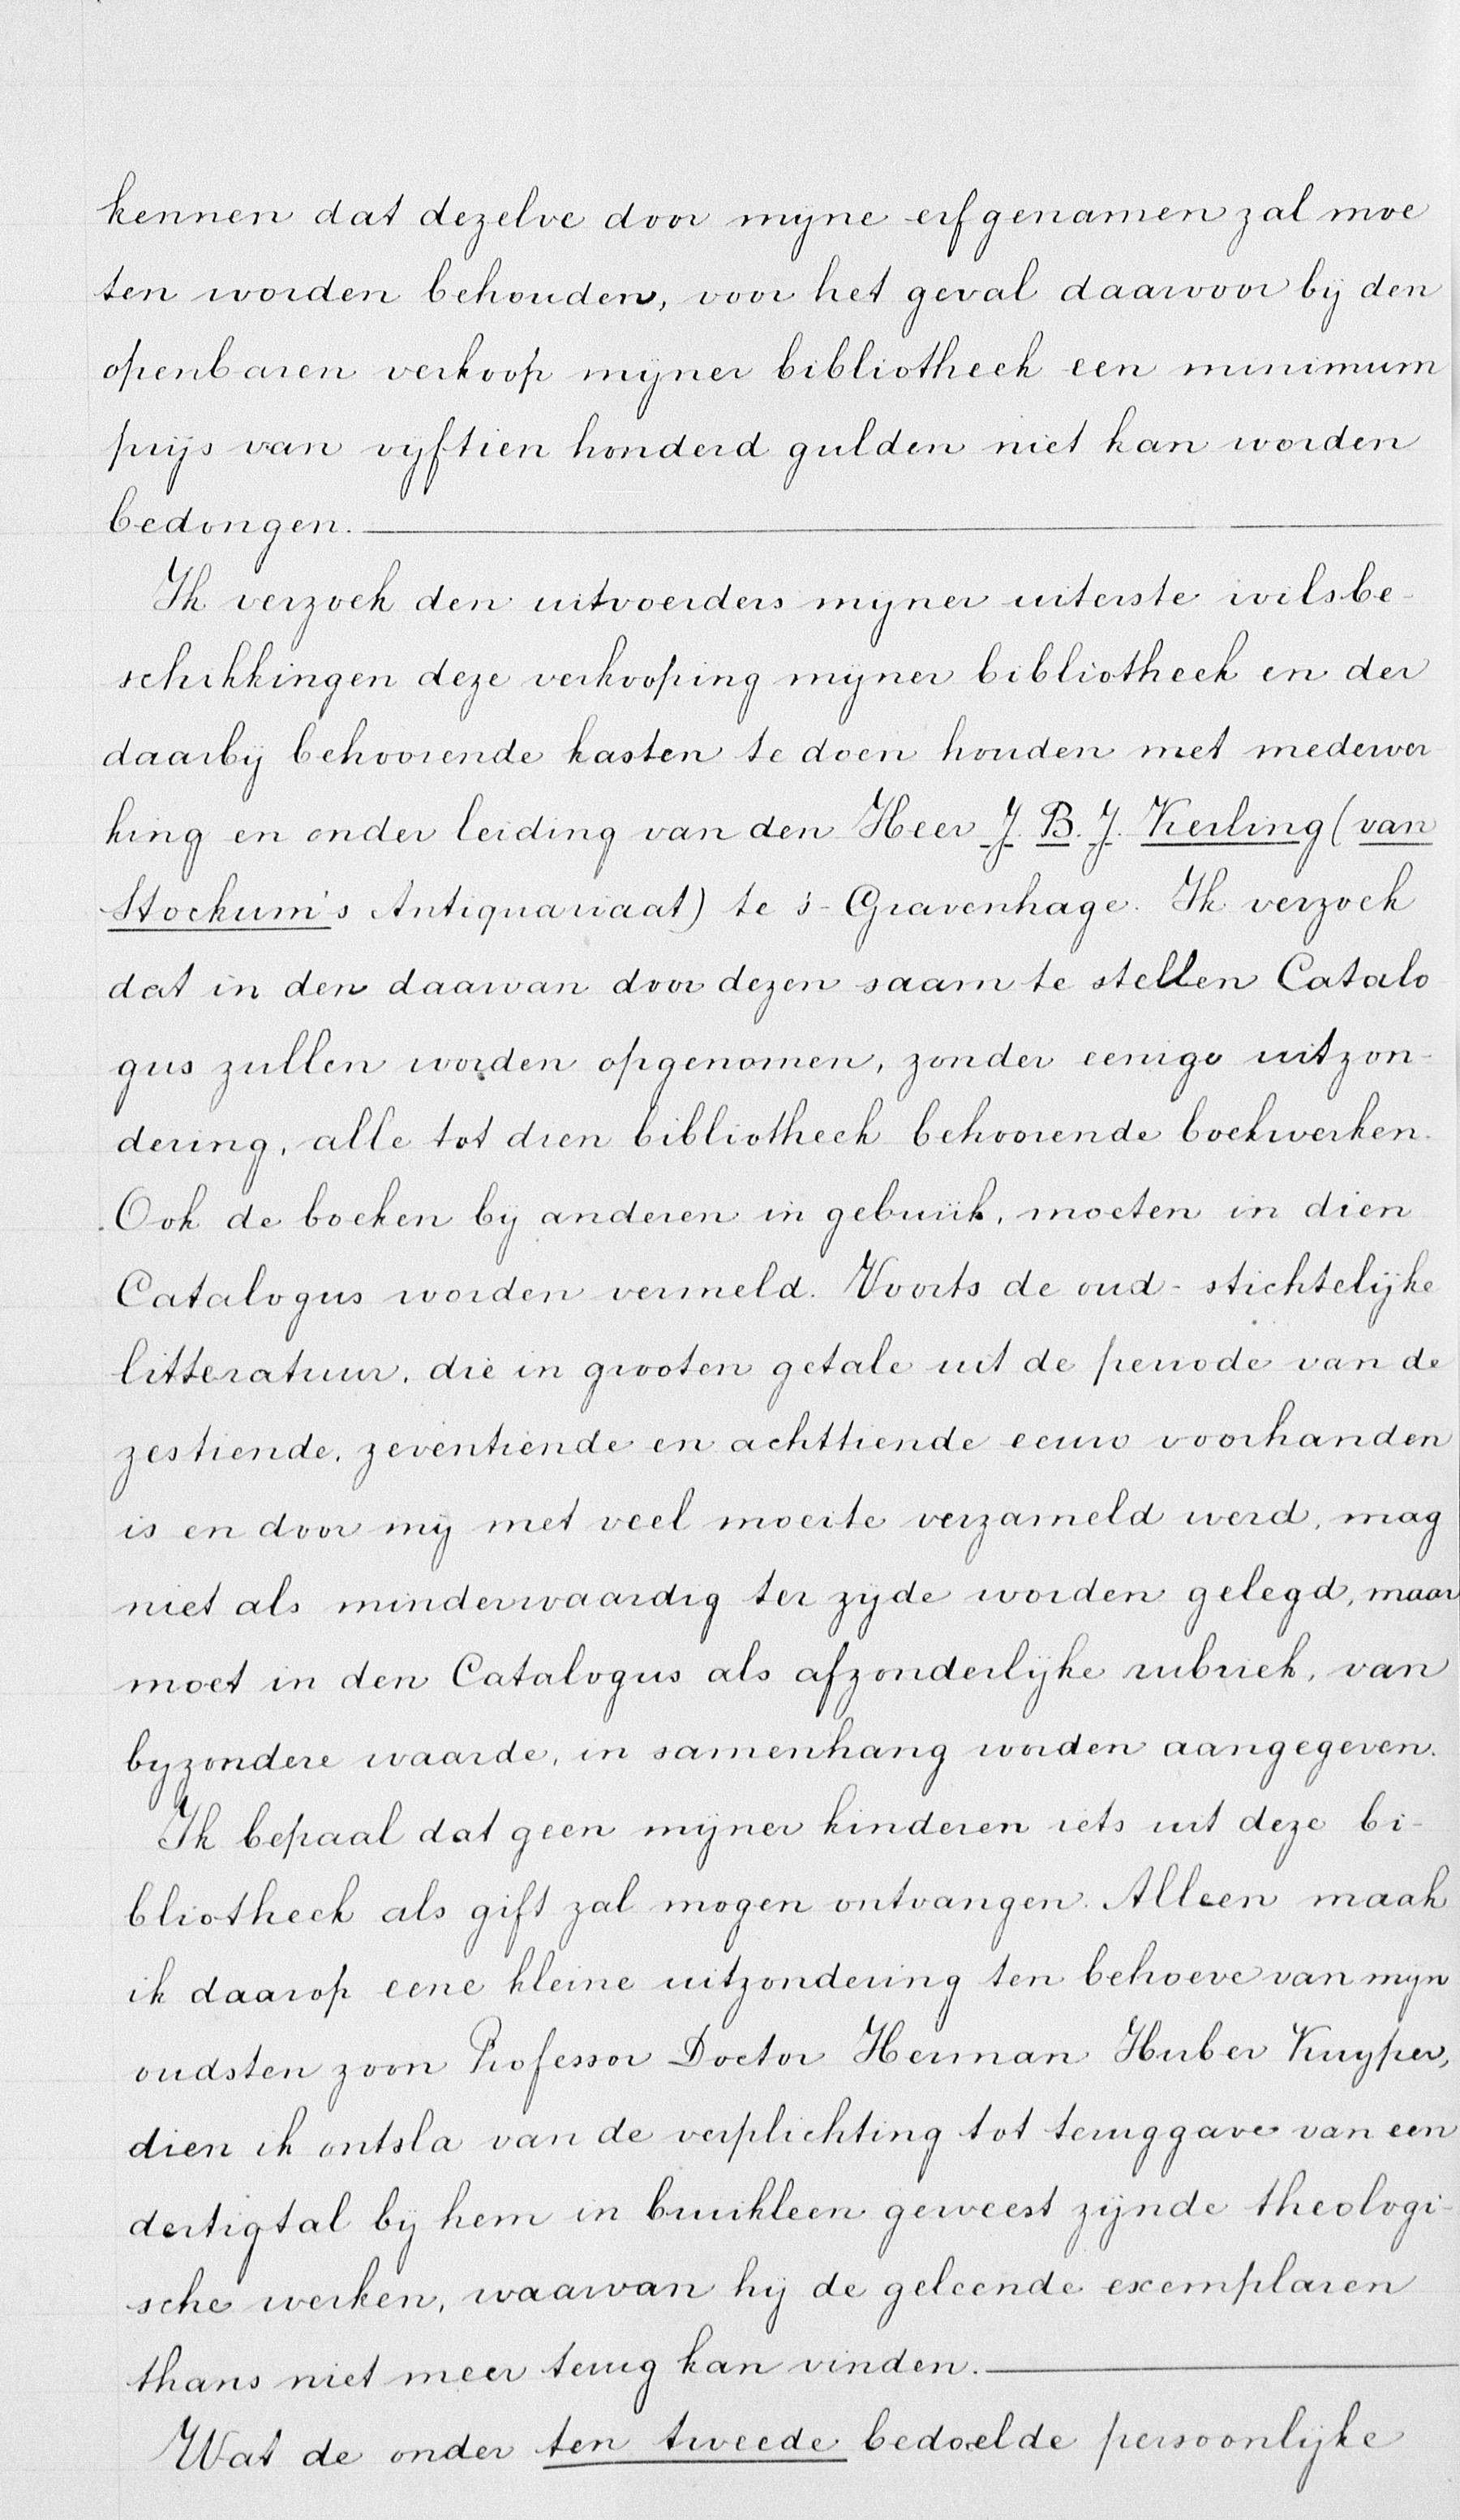 kennen dat dezelve door mijne erfgenamen zal moe
ten worden behouden, voor het geval daarvoor bij den
openbaren verkoop mijner bibliotheek een minimum
prijs van vijftien honderd gulden niet kan worden
bedongen.
Ik verzoek den uitvoerders mijner uiterste wilsbe-
schikkingen deze verkooping mijner bibliotheek en der
daarbij behoorende kasten te doen houden met medewer
king en onder leiding van den Heer J. B. J. Kerling (van
Stockum's Antiquariaat) te 's-Gravenhage. Ik verzoek
dat in den daarvan door dezen saam te stellen Catalo
gus zullen worden opgenomen, zonder eenige uitzon-
dering, alle tot dien bibliotheek behoorende boekwerken.
Ook de boeken bij anderen in gebruik, moeten in dien
Catalogus worden vermeld. Voorts de oud-stichtelijke
litteratuur, die in grooten getale uit de periode van de
zestiende, zeventiende en achttiende eeuw voorhanden
is en door mij met veel moeite verzameld werd, mag
niet als minderwaardig ter zijde worden gelegd, maar
moet in den Catalogus als afzonderlijke rubriek, van
bijzondere waarde, in samenhang worden aangegeven.
Ik bepaal dat geen mijner kinderen iets uit deze bi-
bliotheek als gift zal mogen ontvangen. Alleen maak
ik daarop eene kleine uitzondering ten behoeve van mijn
oudsten zoon Professor Doctor Herman Huber Kuyper,
dien ik ontsla van de verplichting tot teruggave van een
dertigtal bij hem in bruikleen geweest zijnde theologi-
sche werken, waarvan hij de geleende exemplaren
thans niet meer terug kan vinden.
Wat de onder ten tweede bedoelde persoonlijke